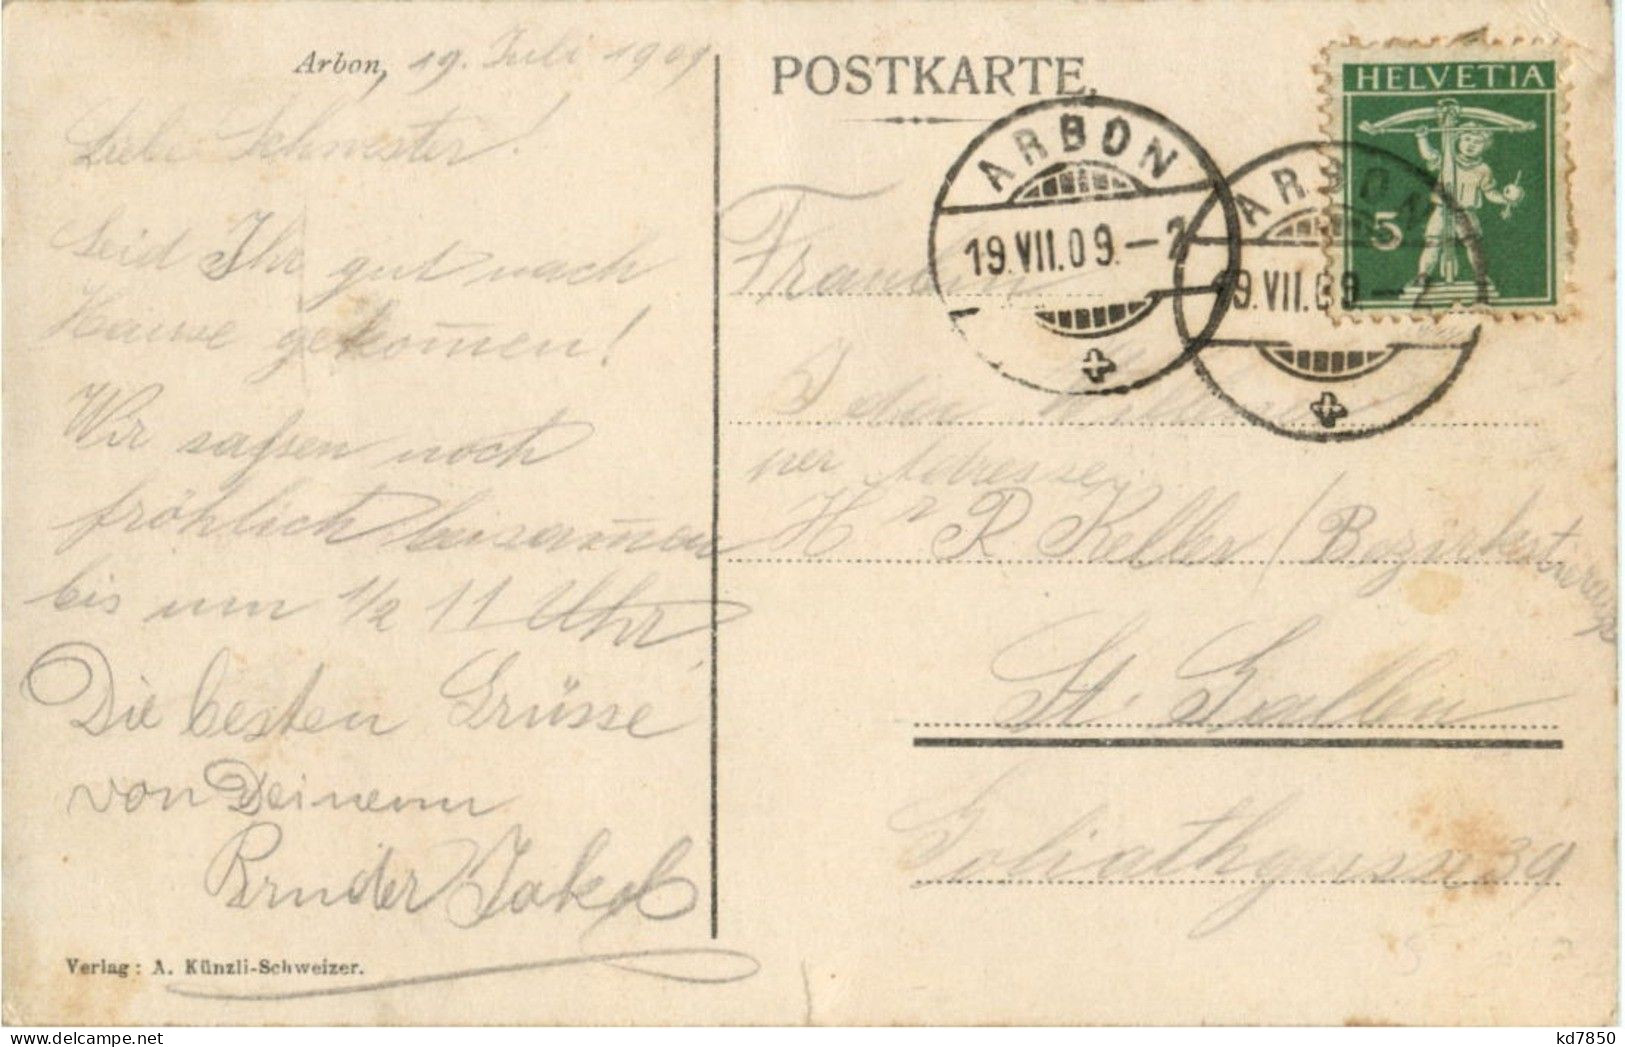 Arbon, 19. Juli 1909
Liebe Schwester!
Seid Ihr gut nach
Hause gekom̅en!
Wir sassen noch
fröhlich beisam̅en
bis um 1/2 11 Uhr.
Die besten Grüsse
von Deinem
Bruder Jakob
Verlag: A. Künzli-Schweizer.
POSTKARTE.
HELVETIA
5
ARBON
19.VII.09.–2
ARBON
19.VII.09–2
Fräulein
per Adresse
Hr R Keller (Bezirkstierarzt
St. Gallen
Goliathgasse 39
kd7850